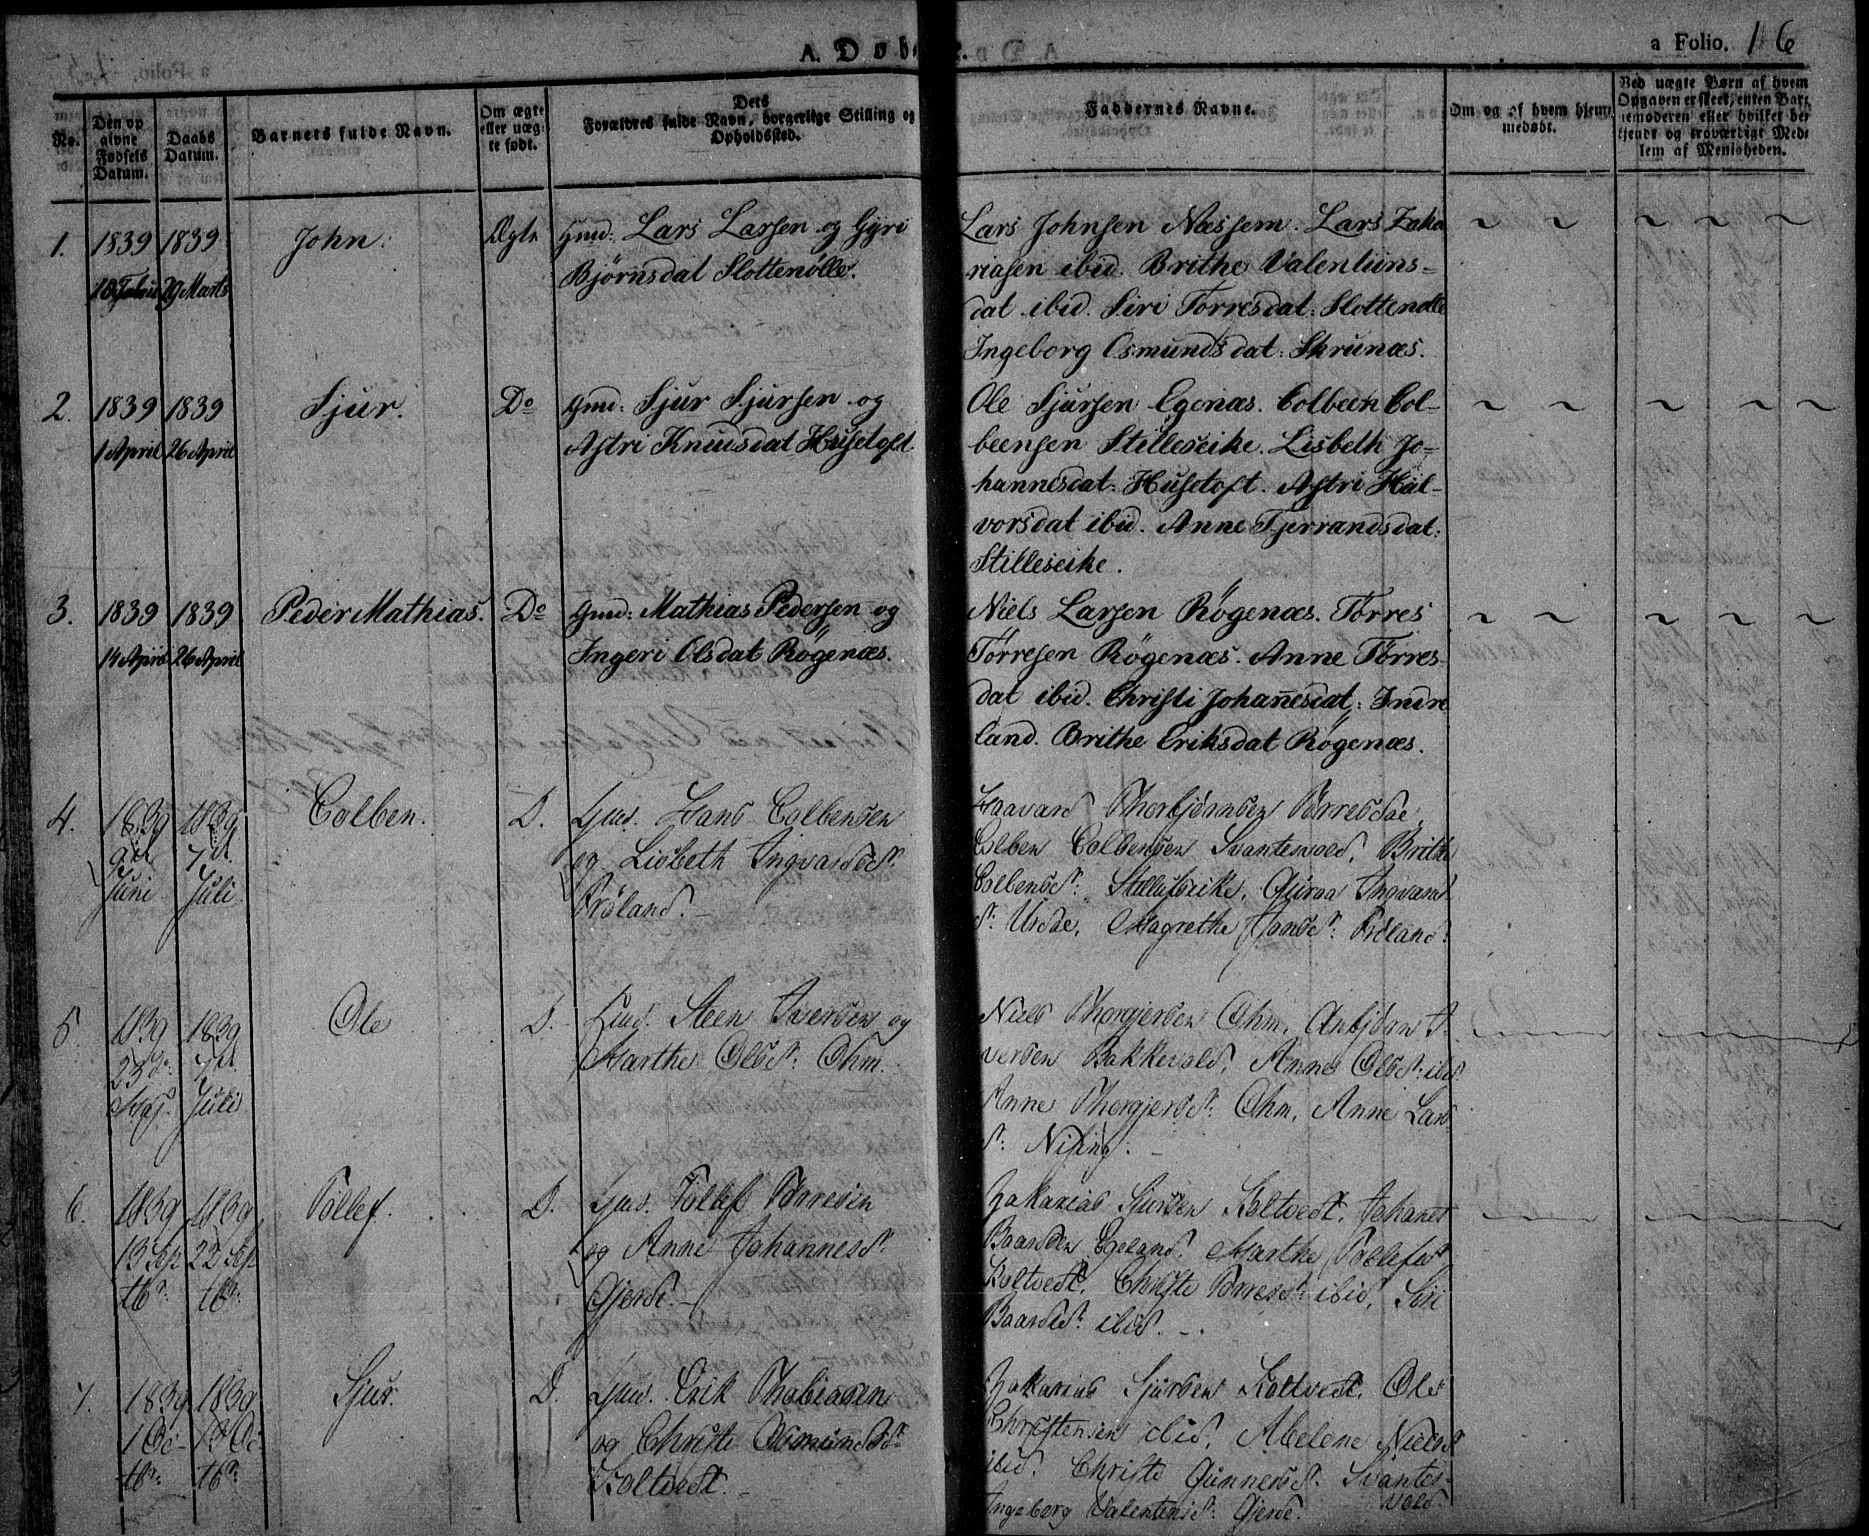 A. Døbe
a Folio. 16
No.
Den op
givne
Fødsels
Datum.
Daabs
Datum.
Barnets fulde Navn.
Om ægte
eller uæg-
te født.
Dets
Forældres fulde Navn, borgerlige Stilling og
Opholdssted.
Faddernes Navne.
Om og af hvem hjemme
medøbt.
Ved uægte Børn af hvem
Opgaven er skeet, enten Bar-
nemoderen eller hvilket be-
kjendt og troværdigt Med-
lem af Menigheden.
1. 1839 1839 John. Ægte Gmd: Lars Larsen og Gyri
29 Marts Bjørnsdat Slottenølle.
Lars Johnsen Næssem. Lars Zaka
riasen ibid. Brithe Valentiins=
dat ibid. Siri Torresdat: Slottenølle
Ingeborg Osmundsdat: Skrunæs.
2. 1839 1839 Sjur. Do Gmd: Sjur Sjursen og
1 April 26 April Astri Knudsdat Husetoft
Ole Sjursen Egenæs. Colbeen Col-
beensen Stilleseike. Lisbeth Jo-
hannesdat: Husetoft. Astri Hal-
vorsdat ibid. Anne Tjerrandsdat:
Stilleseike.
3. 1839 1839 Peder Mathias. Do Gmd: Mathias Pedersen og
14 April 26 April Ingeri Olsdat Røgenæs.
Niels Larsen Røgenæs. Tørres
Tørresen Røgenæs. Anne Tørres-
dat ibid. Christi Johañesdat: Indre
land. Brithe Eriksdat Røgenæs.
4. 1839 1839 Colben. D. Gmd. Hans Colbensen
9d 7d og Lisbeth Ingvardsd:
Juni Juli Frøland.
Haavard Thorbjørnsen
Colben Colbensen Svantesvold, Brithe
Colbensd: Stilleseike, Guroa Ingvard
d: Urdae, Magrethe Hansd: Frøland.
5 1839 1839 Ole D. Gmd. Steen Iversen og
23d 7d Marthe Olsd: Ohm.
Maj. Juli
Niels Thorgjersen Ohm, Anbjørn I-
versen Bakkevold, Anne Olsd: ibid.
Anne Thorgjersd: Ohm, Anne Lars
d:
6. 1839 1839 Tollef. D. Gmd. Tollef Torresen
13 Sep 22 Sep og Anne Johannesd:
tbr: tbr: Gjerde.
Zakarias Sjursen Koltvedt, Johanes
Baardsen Egeland, Marthe Tollefsd
Koltvedt, Christe Torresd: ibid, Siri
Baardsd: ibid.
7. 1839 1839 Sjur. D. Gmd. Erik Thobiasen
1 Oc- 13 Oc og Christi Osmundsd:
tbr: tbr: Koltvedt.
Zakarias Sjursen Koltvedt, Ole
Christensen ibid, Abelene Nielsd
ibid, Christe Gunnersd: Svantes-
vold.
Ingeborg Valentinsd: Gjerde.